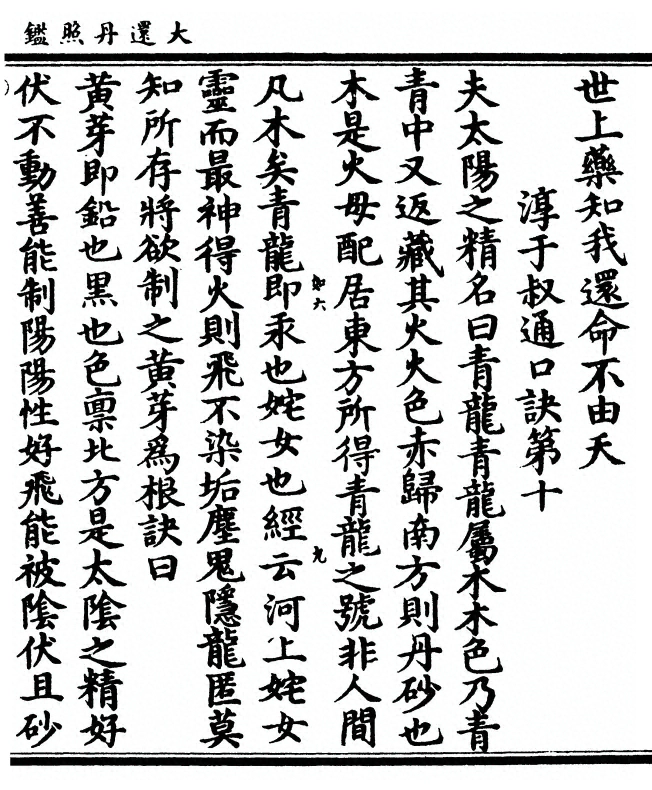 大還丹照鑑
世上藥知我還命不由天
淳于叔通口訣第十
夫太陽之精名曰青龍青龍屬木木色乃青
青中又返藏其火火色赤歸南方則丹砂也
木是火母配居東方所得青龍之號非人間
如六
九
凡木矣青龍即汞也姹女也經云河上姹女
靈而最神得火則飛不染垢塵鬼隱龍匿莫
知所存將欲制之黃芽爲根訣曰
黃芽即鉛也黑也色稟北方是太陰之精好
伏不動善能制陽陽性好飛能被陰伏且砂